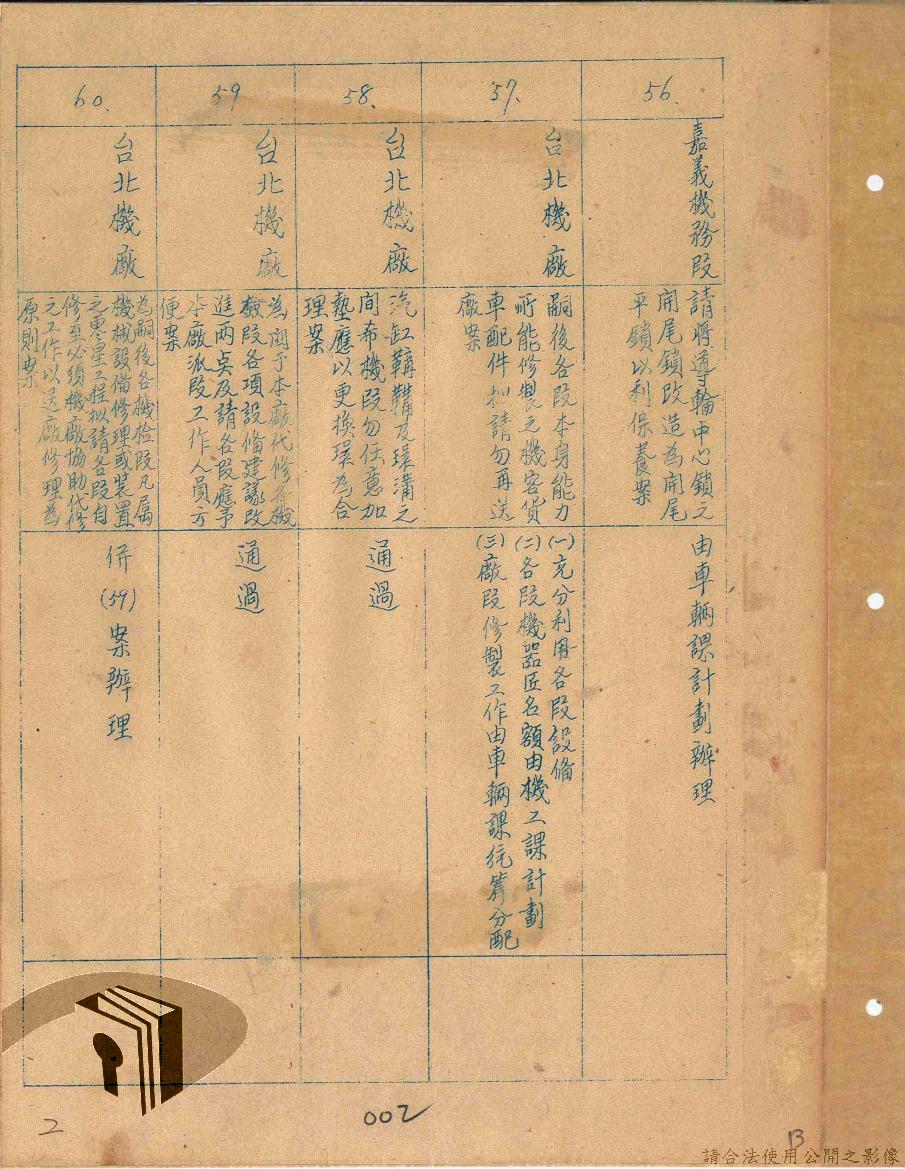 56.
嘉義機務段
請將導輪中心鎖之
開尾鎖改造為開尾
平鎖以利保養案
由車輛課計劃辦理
57.
台北機廠
嗣後各段本身能力
所能修製之機客貨
車配件擬請勿再送
廠案
(一)充分利用各段設備
(二)各段機器匠名額由機工課計劃
(三)廠段修製工作由車輛課統籌分配
58.
台北機廠
汽缸鞲鞴及環溝之
間希機段勿任意加
墊應以更換環為合
理案
通過
59
台北機廠
為関于本廠代修各機
檢段各項設備建議改
進兩点及請各段應予
本廠派段工作人員方
便案
通過
60.
台北機廠
為嗣後各機檢段凡属
機械設備修理或裝置
之零星工程擬請各段自
修至必須機廠協助代修
之工作以送廠修理為
原則案
併(59)案辦理
002
2
13
請合法使用公開之影像